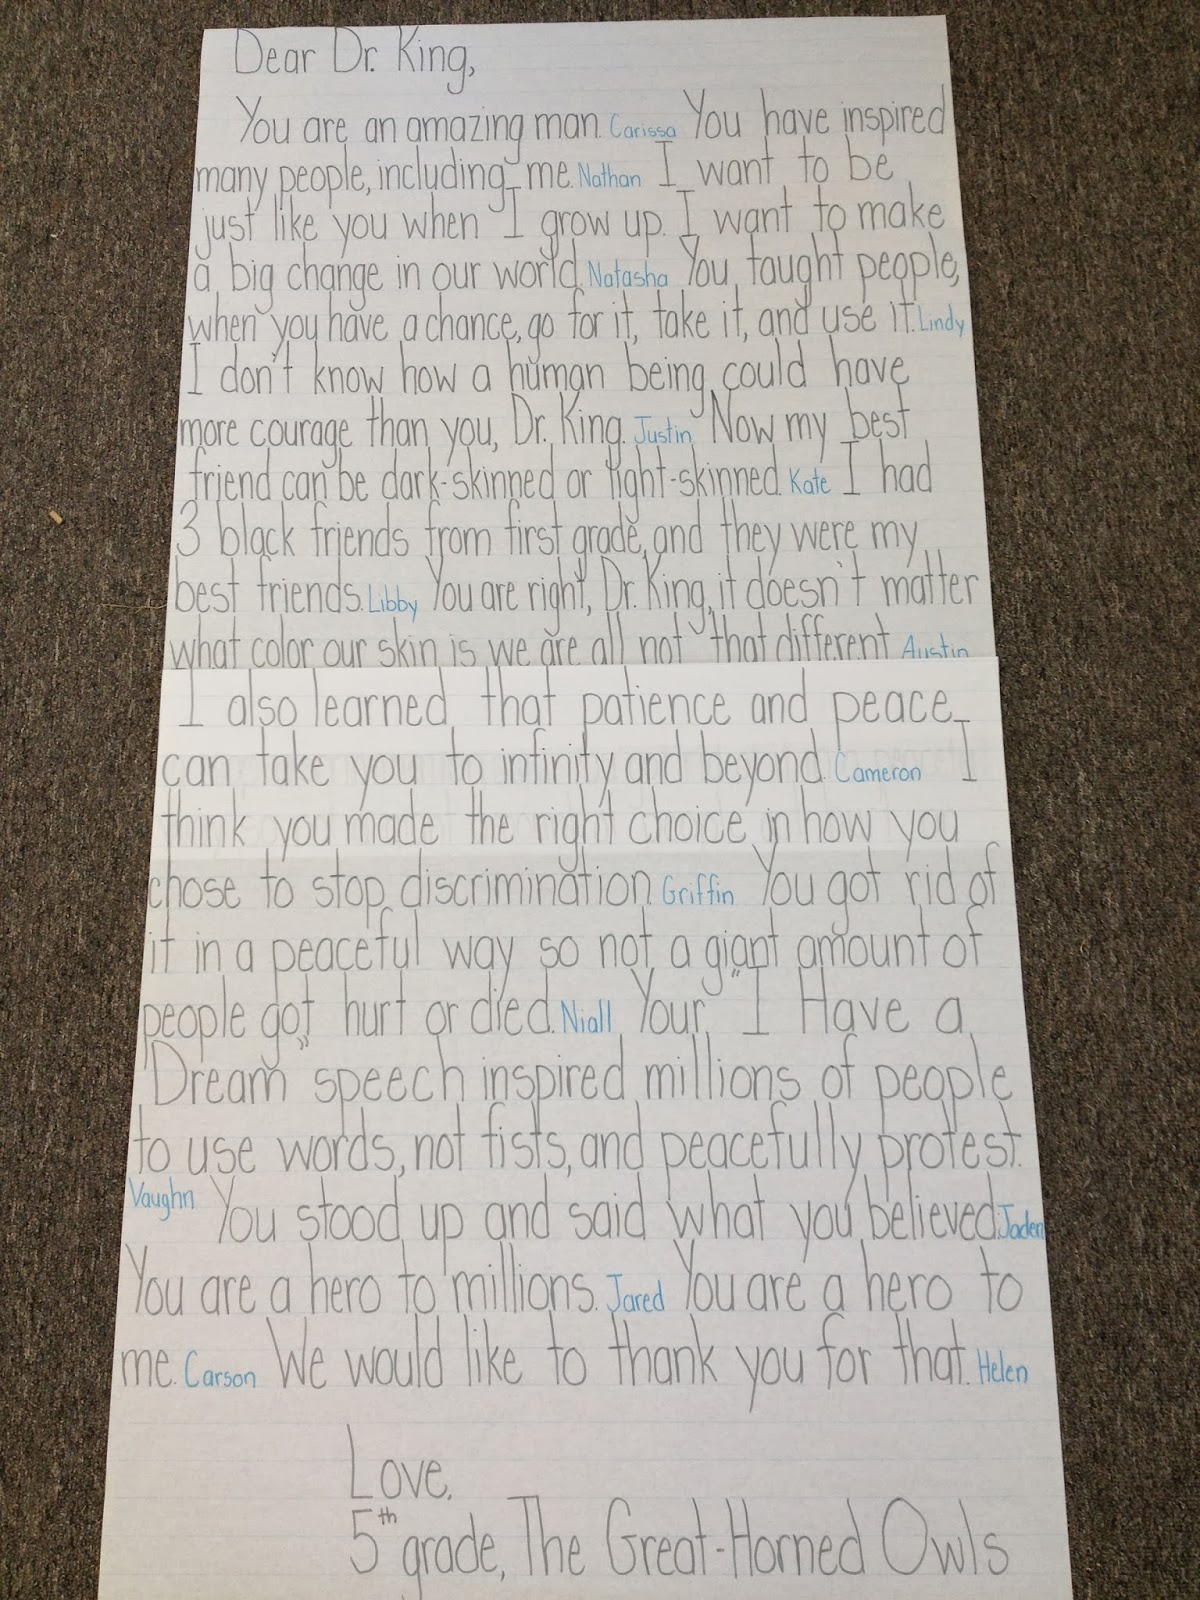 Dear Dr. King,
You are an amazing man. Carissa You have inspired
many people, including me. Nathan I want to be
just like you when I grow up. I want to make
a big change in our world. Natasha You taught people,
when you have a chance, go for it, take it, and use it. Lindy
I don't know how a human being could have
more courage than you, Dr. King. Justin Now my best
friend can be dark-skinned or light-skinned. Kate I had
3 black friends from first grade, and they were my
best friends. Libby You are right, Dr. King, it doesn't matter
what color our skin is we are all not that different Austin
I also learned that patience and peace
can take you to infinity and beyond. Cameron I
think you made the right choice in how you
chose to stop discrimination. Griffin You got rid of
it in a peaceful way so not a giant amount of
people got hurt or died. Niall Your "I Have a
Dream" speech inspired millions of people
to use words, not fists, and peacefully protest.
Vaughn You stood up and said what you believed. Jaden
You are a hero to millions. Jared You are a hero to
me. Carson We would like to thank you for that. Helen
Love,
5th grade, The Great-Horned Owls